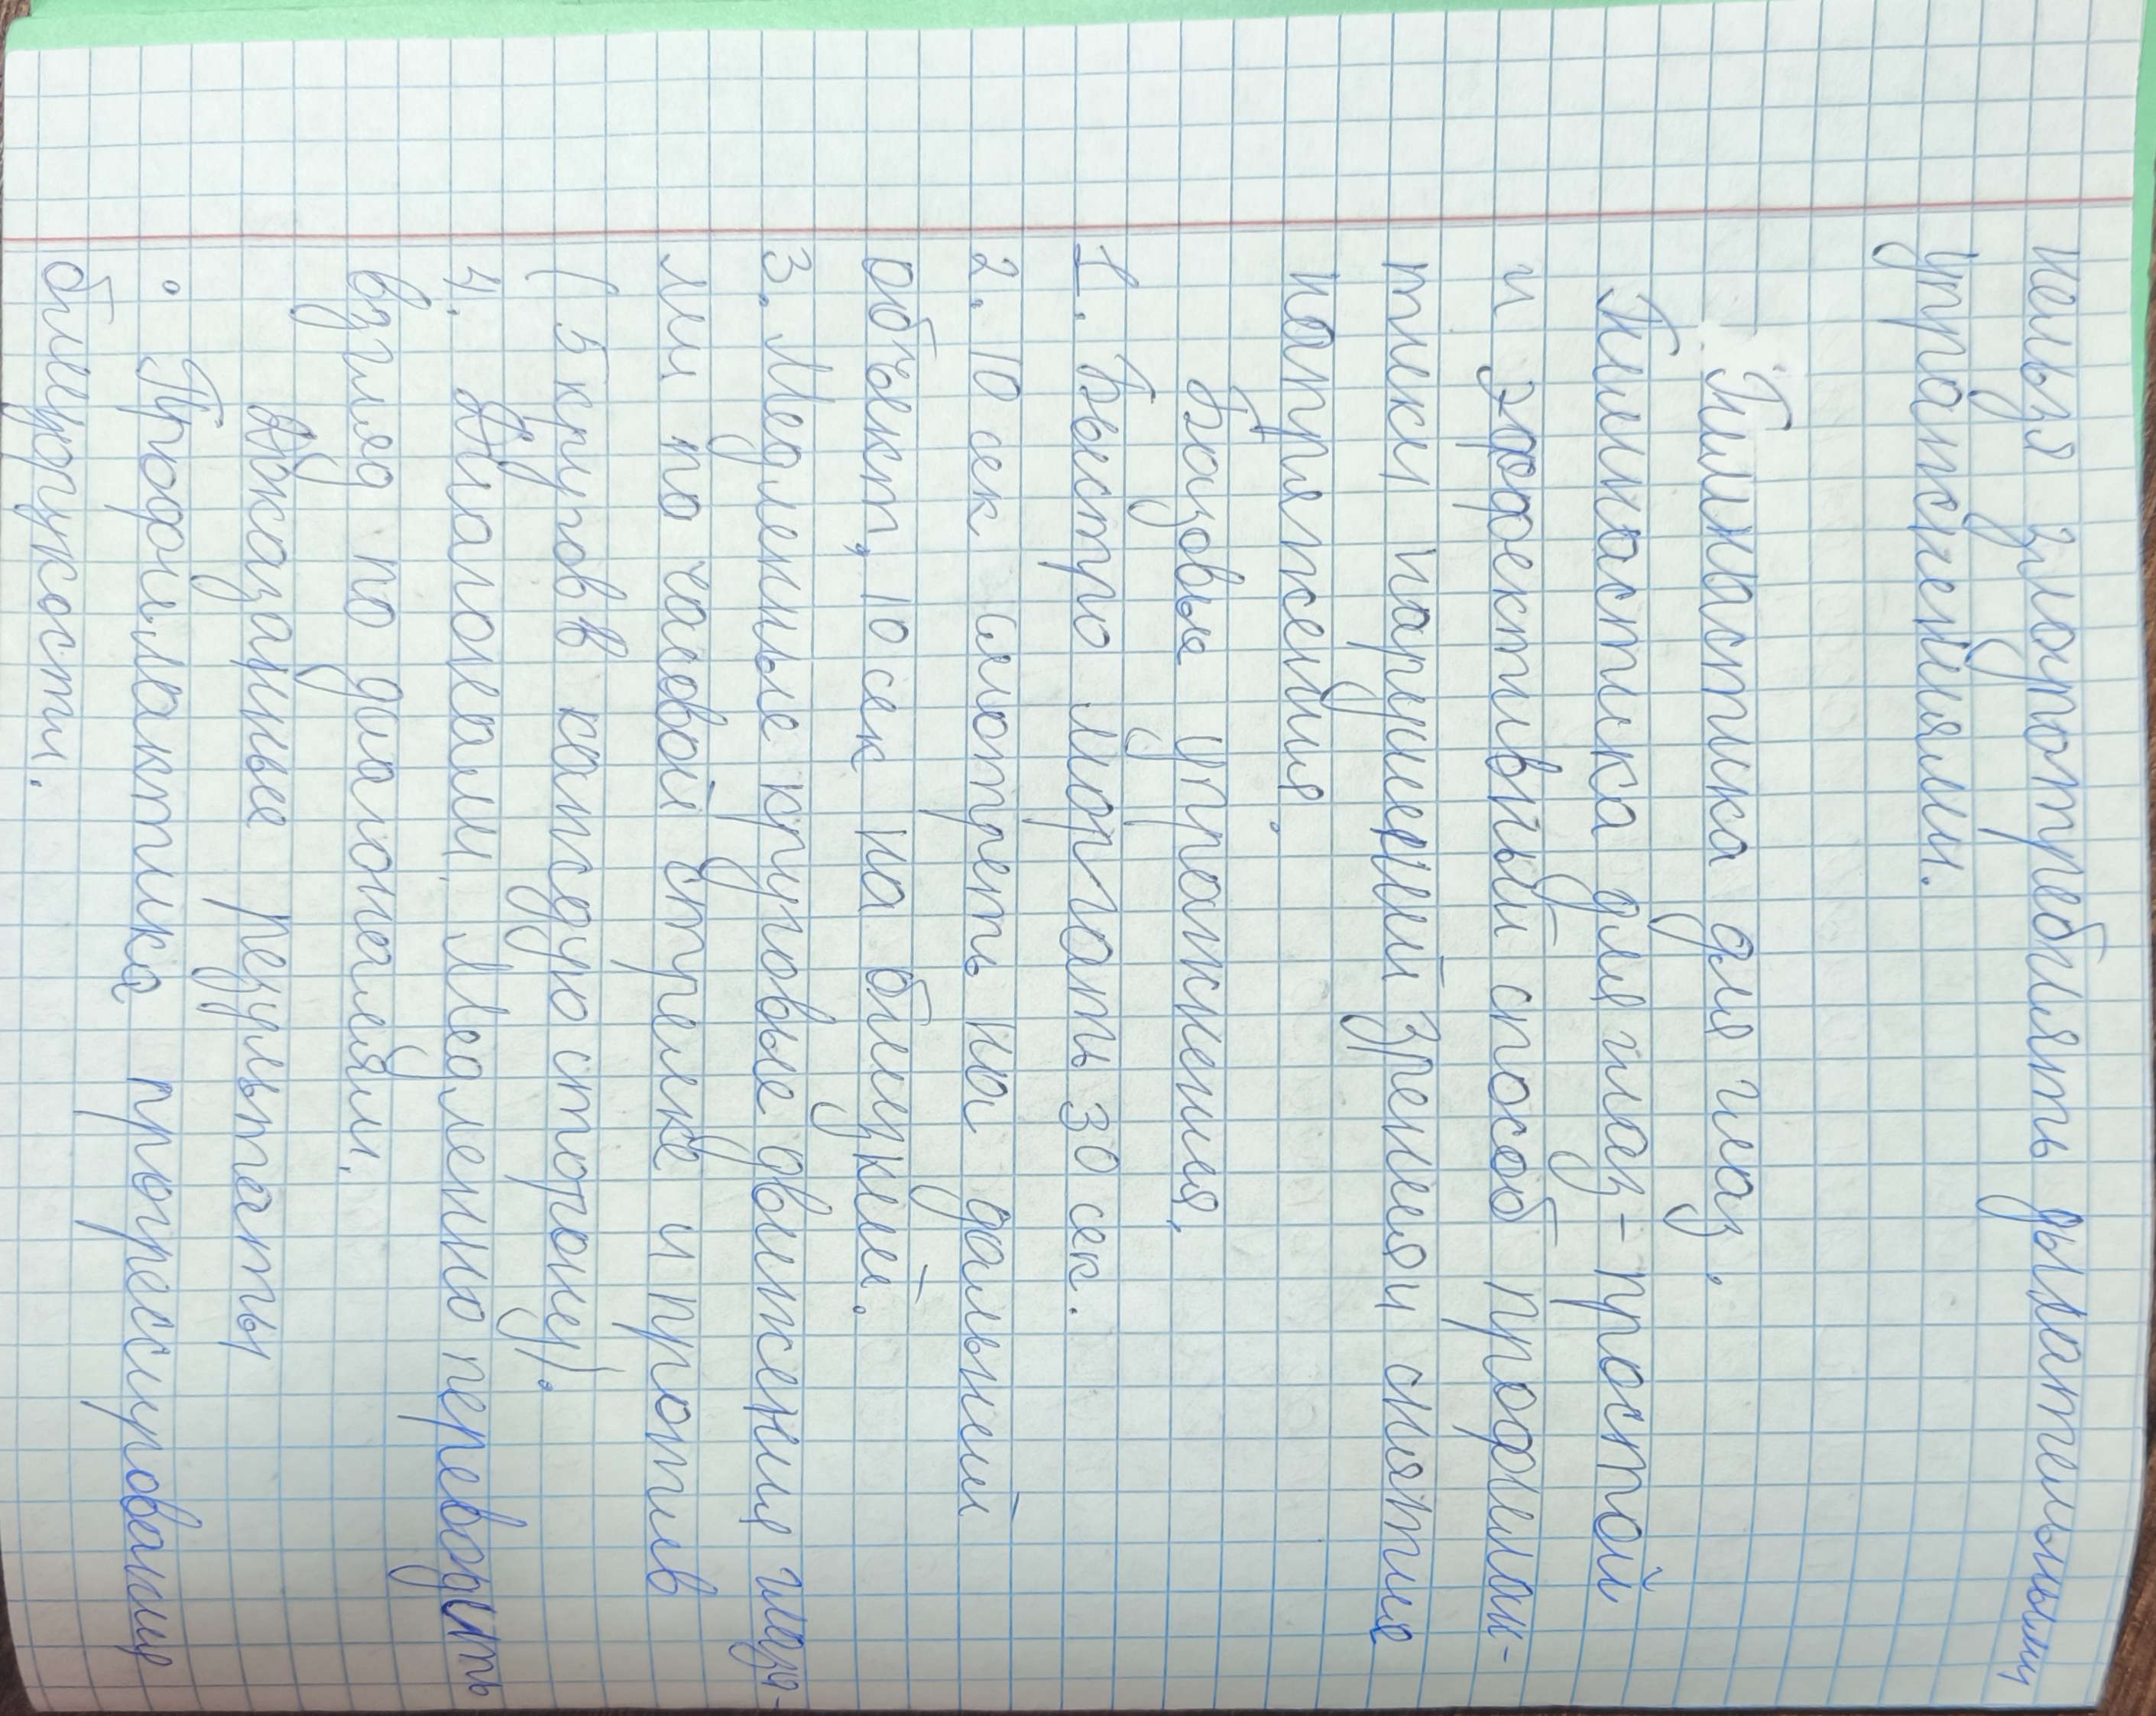 нельзя злоупотреблять дыхательными
упражнениями.
Гимнастика для глаз.
Гимнастика для глаз - простой
и эффективный способ профилак-
тики нарушений зрения и снятия
напряжения.
Базовые упражнения.
1. Быстро моргать 30 сек.
2. 10 сек смотреть на дальний
объект, 10 сек на ближний.
3. Медленные круговые движения глаза-
ми по часовой стрелке и против
(5 кругов в каждую сторону).
4. Диагонали. Медленно переводить
взгляд по диагоналям.
Доказанные результаты
• Профилактика прогрессирования
близорукости.